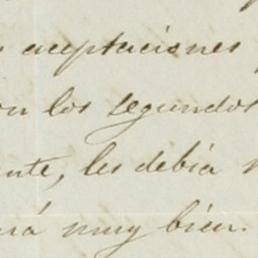 aceptaciones
los segundos
les debia
muy bien.